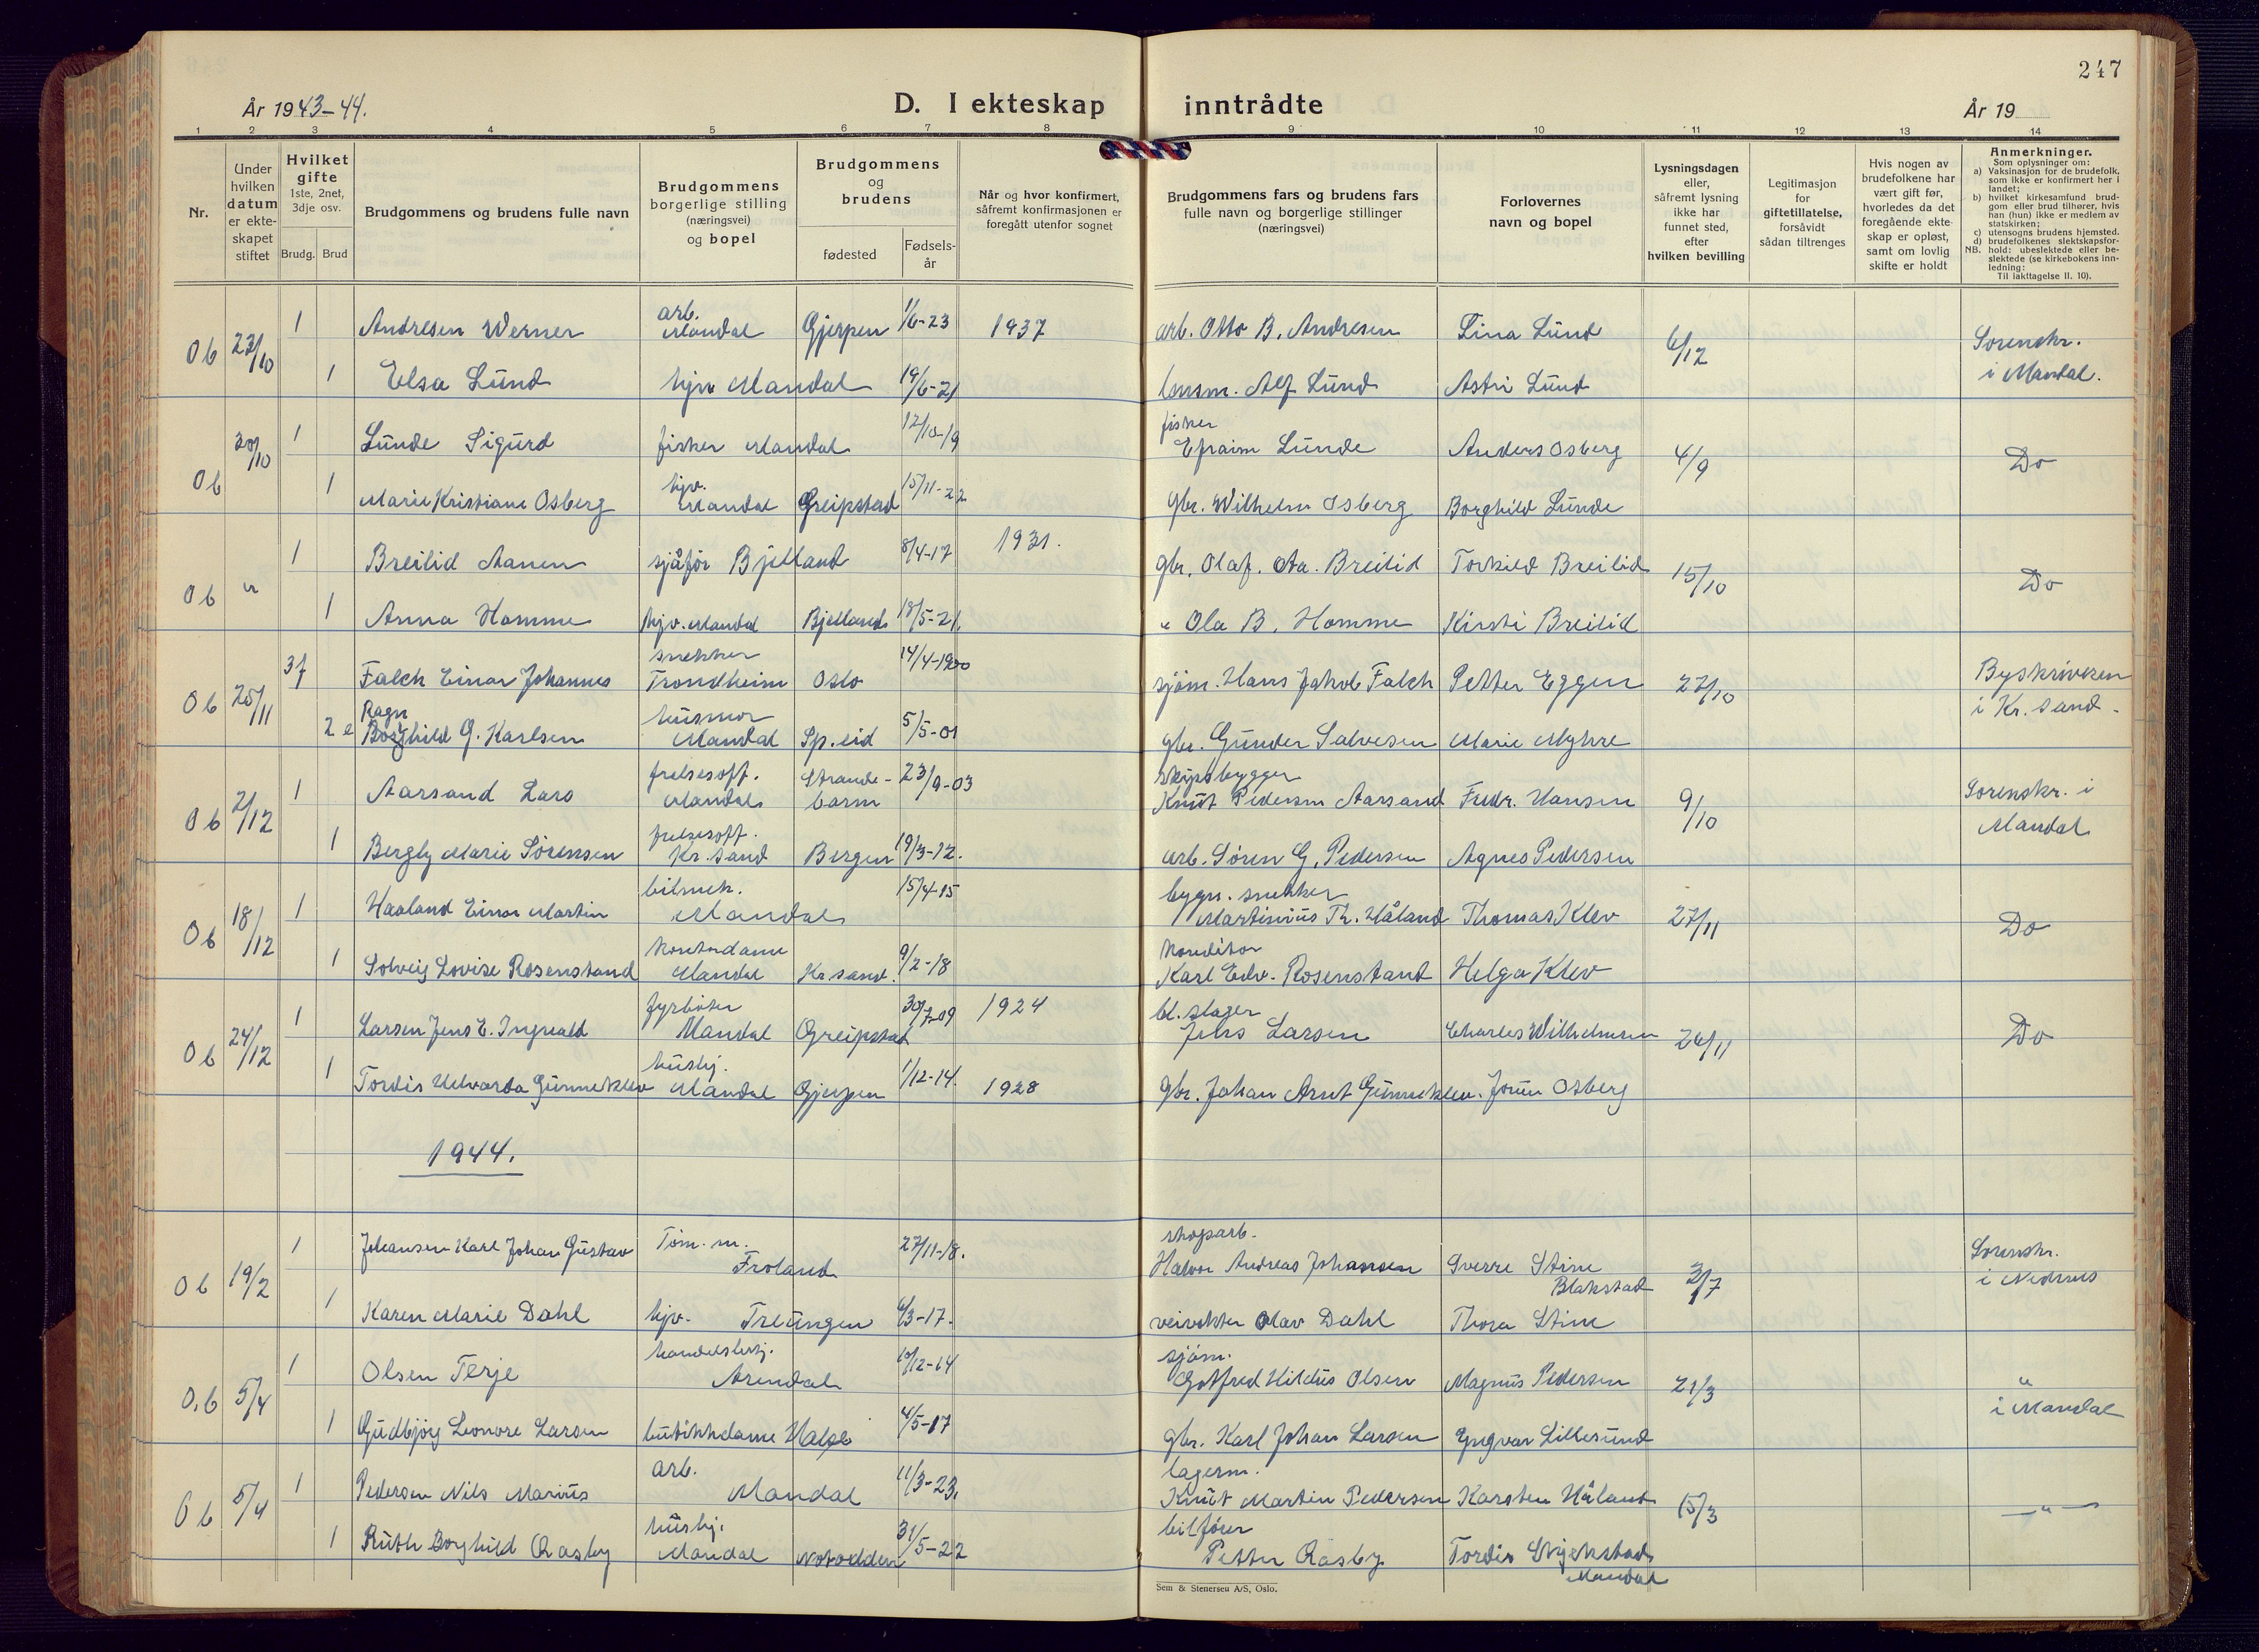 247
År 1943-44.
D. I ekteskap inntrådte
År 19
1 2 3 4 5 6 7 8 9 10 11 12 13 14
Nr.
Under hvilken datum er ekteskapet stiftet
Hvilket gifte 1ste, 2net, 3dje osv.
Brudg. Brud
Brudgommens og brudens fulle navn
Brudgommens borgerlige stilling (næringsvei) og bopel
Brudgommens og brudens
fødested
Fødselsår
Når og hvor konfirmert, såfremt konfirmasjonen er foregått utenfor sognet
Brudgommens fars og brudens fars fulle navn og borgerlige stillinger (næringsvei)
Forlovernes navn og bopel
Lysningsdagen eller, såfremt lysning ikke har funnet sted, efter hvilken bevilling
Legitimasjon for giftetillatelse, forsåvidt sådan tiltrenges
Hvis nogen av brudefolkene har vært gift før, hvorledes da det foregående ekteskap er opløst, samt om lovlig skifte er holdt
Anmerkninger.
Som oplysninger om:
a) Vaksinasjon for de brudefolk, som ikke er konfirmert her i landet;
b) hvilket kirkesamfund brudgom eller brud tilhører, hvis han (hun) ikke er medlem av statskirken;
c) utensogns brudens hjemsted.
d) brudefolkenes slektskapsforhold: ubeslektede eller beslektede (se kirkebokens innledning:
NB. Til iakttagelse II. 10).
Ob 23/10 1 Andresen Werner arb. Mandal Gjerpen 1/6-23 1937 arb. Otto B. Andresen Lina Lund 6/12 Sorenskr. i Mandal.
1 Elsa Lund hjv Mandal 19/6-21 Alf Lund Astri Lund
Ob 30/10 1 Lunde Sigurd fisker Mandal 12/10-19 fisker Efraim Lunde Anders Osberg 4/9 Do
1 Marie Kristiane Osberg hjv. Mandal Greipstad 15/11-22 gbr. Wilhelm Osberg Borghild Lunde
Ob " 1 Breilid Aanen sjåfør Bjelland 8/4-17 1931. gbr. Olaf. Aa. Breilid Torkild Breilid 15/10 Do
1 Anna Homme hjv. Mandal Bjelland 18/5-21. " Ola B. Homme Kirsti Breilid
Ob 25/11 3f Falch Einar Johannes snekker Trondheim Oslo 14/4-1900 sjøm. Hans Jakob Falch Petter Eggen 27/10 Byskriveren i Kr. sand.
2 e Ragnhild G. Karlsen husmor Mandal Sp.eid 5/5-01 gbr. Gunder Salvesen Marie Myhre
Ob 2/12 1 Aarsand Lars frelsesoff. Mandal Strandebarm 23/9-03 skipsbygger Knut Pedersen Aarsand Fredr. Hansen 9/10 Sorenskr. i Mandal
1 Bergly Marie Sørensen frelsesoff. Kr.sand Bergen 19/3-12. arb. Søren G. Pedersen Agnes Pedersen
Ob 18/12 1 Haaland Einar Martin bilmek. Mandal 15/4-15 bygn. snekker Martinius Th. Håland Thomas Klev 27/11 Do
1 Solveig Lovise Rosenstand kontordame Mandal Kr.sand. 9/2-18 konditor Karl Edv. Rosenstand Helga Klev
Ob 24/12 1 Larsen Jens E. Ingvald fyrbøter Mandal Greipstad 30/7-09 1924 bl.slager Jens Larsen Charles Wilhelmsen 26/11 Do
1 Tordis Helvarda Gunneklev hushj. Mandal Gjerpen 1/12-14. 1928 gbr. Johan Arnt Gunneklev. Jorun Osberg
1944.
Ob 19/2 1 Johansen Karl Johan Gustav Tøm. m. Froland 27/11-18. skogsarb. Halvor Andreas Johansen Sverre Stine Blakstad 2/7 Sorenskr. i Nedenes
1 Karen Marie Dahl hjv. Treungen 6/3-17. veivokter Olav Dahl Thora Stine
O.b 5/4 1 Olsen Terje handelsbetj. Arendal 10/12-14 sjøm. Gotfred Hildus Olsen Magnus Pedersen 21/3 " i Mandal
1 Gudbjørg Leonore Larsen butikkdame Halse 4/5-17 gbr. Karl Johan Larsen Yngvar Lillesund
Ob 5/4 1 Pedersen Nils Marius arb. Mandal 11/3-23. lagerm. Knut Martin Pedersen Karsten Håland 15/3 — " —
1 Ruth Borghild Rasby hushj. Mandal Notodden 31/5-22 bilfører Petter Rasby Tordis Mandal
Sem & Stenersen A/S, Oslo.